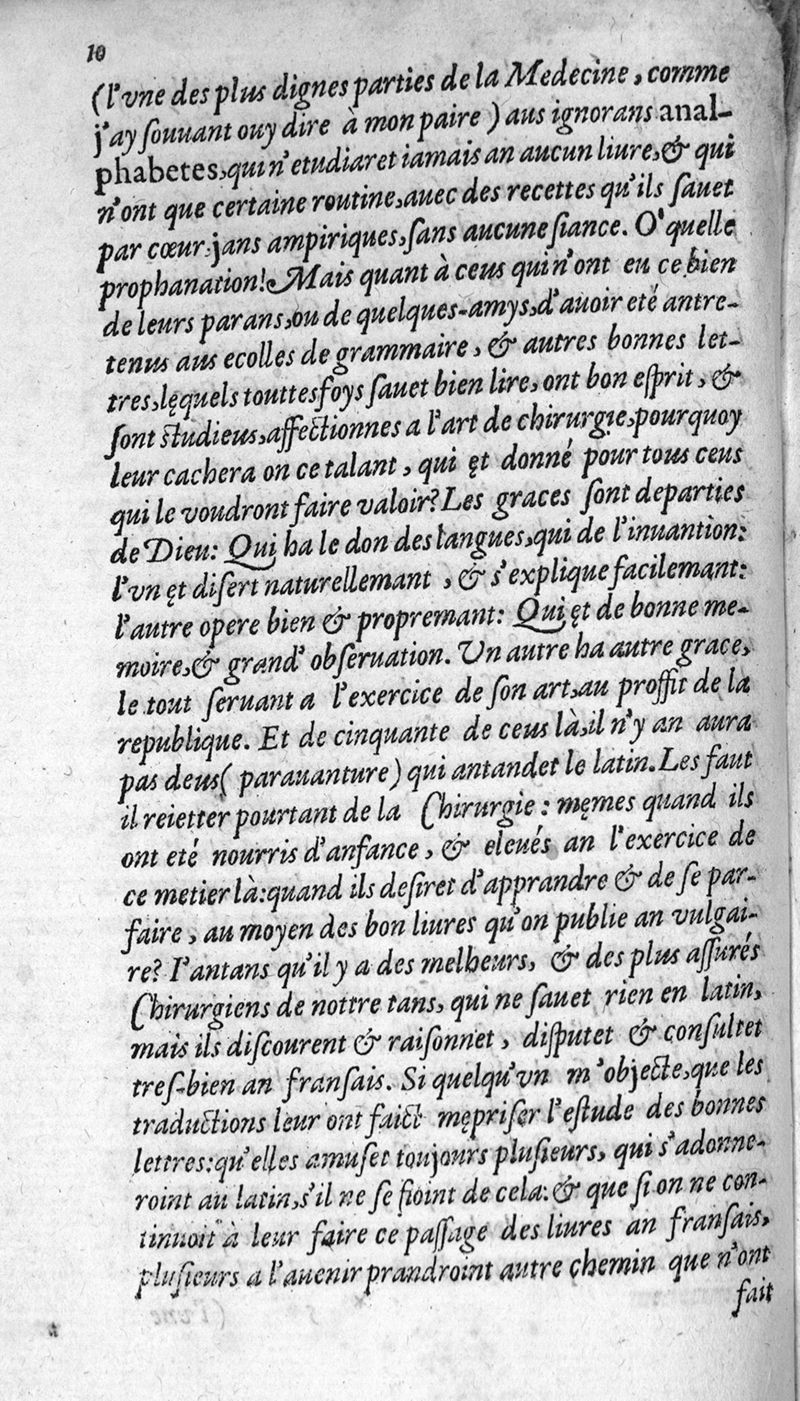 10
(l'vne des plus dignes parties de la Medecine, comme
j'ay souuant ouy dire à mon paire) aus ignorans anal-
phabetes, qui n'etudiaret iamais an aucun liure, & qui
n'ont que certaine routine, auec des recettes qu'ils sauet
par cœur: jans ampiriques, sans aucune siance. O' quelle
prophanation! Mais quant à ceus qui n'ont eu ce bien
de leurs parans, ou de quelques-amys, d'auoir eté antre-
tenus aus ecolles de grammaire, & autres bonnes let-
tres, lęquels touttesfoys sauet bien lire, ont bon esprit, &
sont studieus, affectionnes a l'art de chirurgie, pourquoy
leur cachera on ce talant, qui ęt donné pour tous ceus
qui le voudront faire valoir? Les graces sont departies
de Dieu: Qui ha le don des langues, qui de l'inuantion:
l'vn ęt disert naturellemant, & s'explique facilemant:
l'autre opere bien & propremant: Qui ęt de bonne me-
moire, & grand' obseruation. Vn autre ha autre grace,
le tout seruant a l'exercice de son art, au proffit de la
republique. Et de cinquante de ceus là, il n'y an aura
pas deus (parauanture) qui antandet le latin. Les faut
il reietter pourtant de la Chirurgie: męmes quand ils
ont eté nourris d'anfance, & eleués an l'exercice de
ce metier là: quand ils desiret d'apprandre & de se par-
faire, au moyen des bon liures qu'on publie an vulgai-
re? I'antans qu'il y a des melheurs, & des plus assurés
Chirurgiens de nottre tans, qui ne sauet rien en latin,
mais ils discourent & raisonnet, disputet & consultet
tres-bien an fransais. Si quelqu'vn m'objecte, que les
traductions leur ont faict mępriser l'estude des bonnes
lettres: qu'elles amuset toujours plusieurs, qui s'adonne-
roint au latin, s'il ne se fioint de cela: & que si on ne con-
tinuoit à leur faire ce passage des liures an fransais,
plusieurs a l'auenir prandroint autre chemin que n'ont
fait